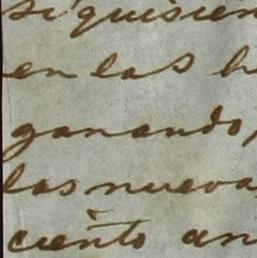 si quisien
en las h
ganando,
las nueva
ciento an